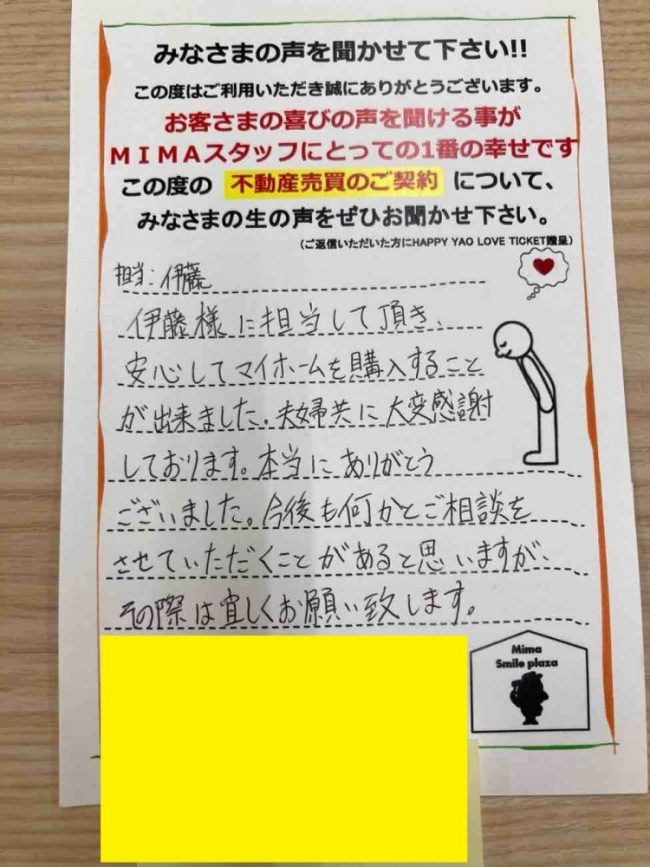 みなさまの声を聞かせて下さい!!
この度はご利用いただき誠にありがとうございます。
お客さまの喜びの声を聞ける事が
MIMAスタッフにとっての1番の幸せです
この度の 不動産売買のご契約 について、
みなさまの生の声をぜひお聞かせ下さい。
(ご返信いただいた方にHAPPY YAO LOVE TICKET贈呈)
担当:伊藤
伊藤様に担当して頂き、
安心してマイホームを購入すること
が出来ました。夫婦共に大変感謝
しております。本当にありがとう
ございました。今後も何かとご相談を
させていただくことがあると思いますが、
その際は宜しくお願い致します。
Mima
Smile plaza